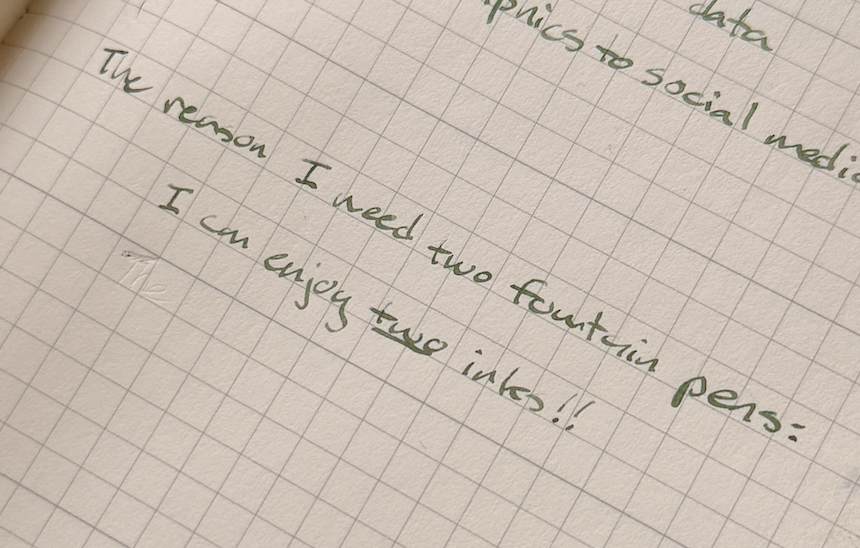 data
to social
The reason I need two fountain pens:
I can enjoy two inks!!
The